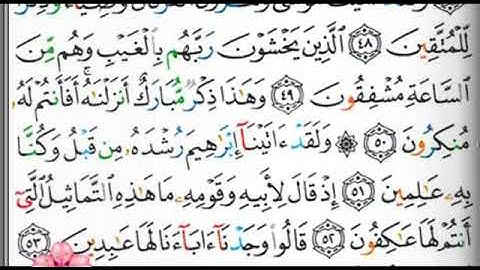 لِّلْمُتَّقِينَ ٤٨ ٱلَّذِينَ يَخْشَوْنَ رَبَّهُم بِٱلْغَيْبِ وَهُم مِّنَ
ٱلسَّاعَةِ مُشْفِقُونَ ٤٩ وَهَٰذَا ذِكْرٌ مُّبَارَكٌ أَنزَلْنَٰهُ ۚ أَفَأَنتُمْ لَهُۥ
مُنكِرُونَ ٥٠ ۞ وَلَقَدْ ءَاتَيْنَآ إِبْرَٰهِيمَ رُشْدَهُۥ مِن قَبْلُ وَكُنَّا
بِهِۦ عَٰلِمِينَ ٥١ إِذْ قَالَ لِأَبِيهِ وَقَوْمِهِۦ مَا هَٰذِهِ ٱلتَّمَاثِيلُ ٱلَّتِىٓ
أَنتُمْ لَهَا عَٰكِفُونَ ٥٢ قَالُوا۟ وَجَدْنَآ ءَابَآءَنَا لَهَا عَٰبِدِينَ ٥٣